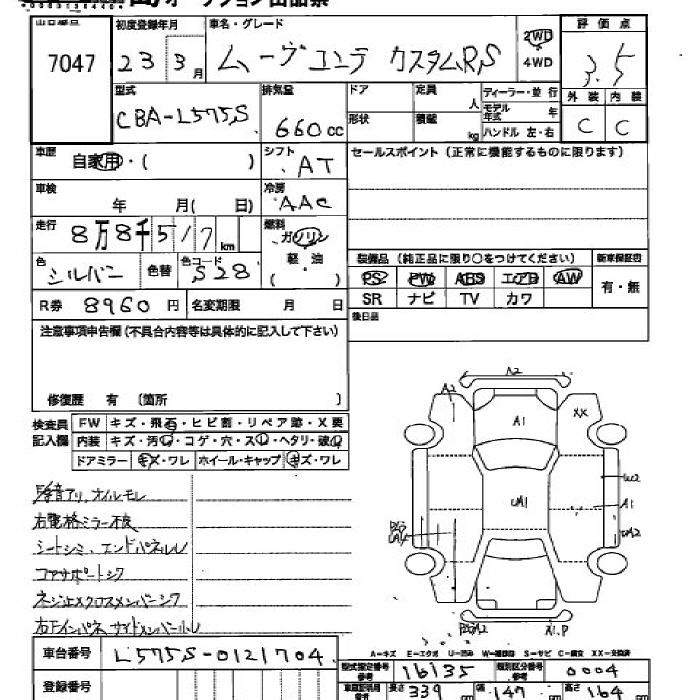 オークション出品票
出品番号 初度登録年月 車名・グレード 2WD 評価点
7047 23 3月 ムーヴコンテ カスタムRS 4WD 3.5
型式 排気量 ドア 定員 人 ディーラー・並行 外装 内装
CBA-L575S 660cc 形状 積載 kg モデル年式 年 ハンドル 左・右 C C
車歴 自家用・( ) シフト AT セールスポイント(正常に機能するものに限ります)
車検 年 月( 日) 冷房 AAC
走行 8万8千517km 燃料 ガソリン
色 シルバー 色替 色コード S28 軽油 ( )
装備品(純正品に限り○をつけてください) 新車保証書
PS PW ABS エアB AW 有・無
SR ナビ TV カワ
R券 8960円 名変期限 月 日 後日品
注意事項申告欄(不具合内容等は具体的に記入して下さい)
修復歴 有 (箇所 )
検査員記入欄 FW キズ・飛石・ヒビ割・リペア跡・X要
内装 キズ・汚レ・コゲ・穴・スレ・ヘタリ・破レ
ドアミラー キズ・ワレ ホイール・キャップ キズ・ワレ
オイルモレ
右電格ミラー不良
シートシミ、エンドパネルU
コアサポート
クロスメンバー
サイドメンバー
A2
A2 A1 XX
UA1 W2
A1
UA2
A1.P
A-キズ E-エクボ U-凹み W-補修跡 S-サビ C-腐食 XX-交換済
車台番号 L575S-0121704
型式指定番号 参考 16135 類別区分番号 参考 0004
登録番号 長さ 339 cm 幅 147 cm 高さ 164 cm